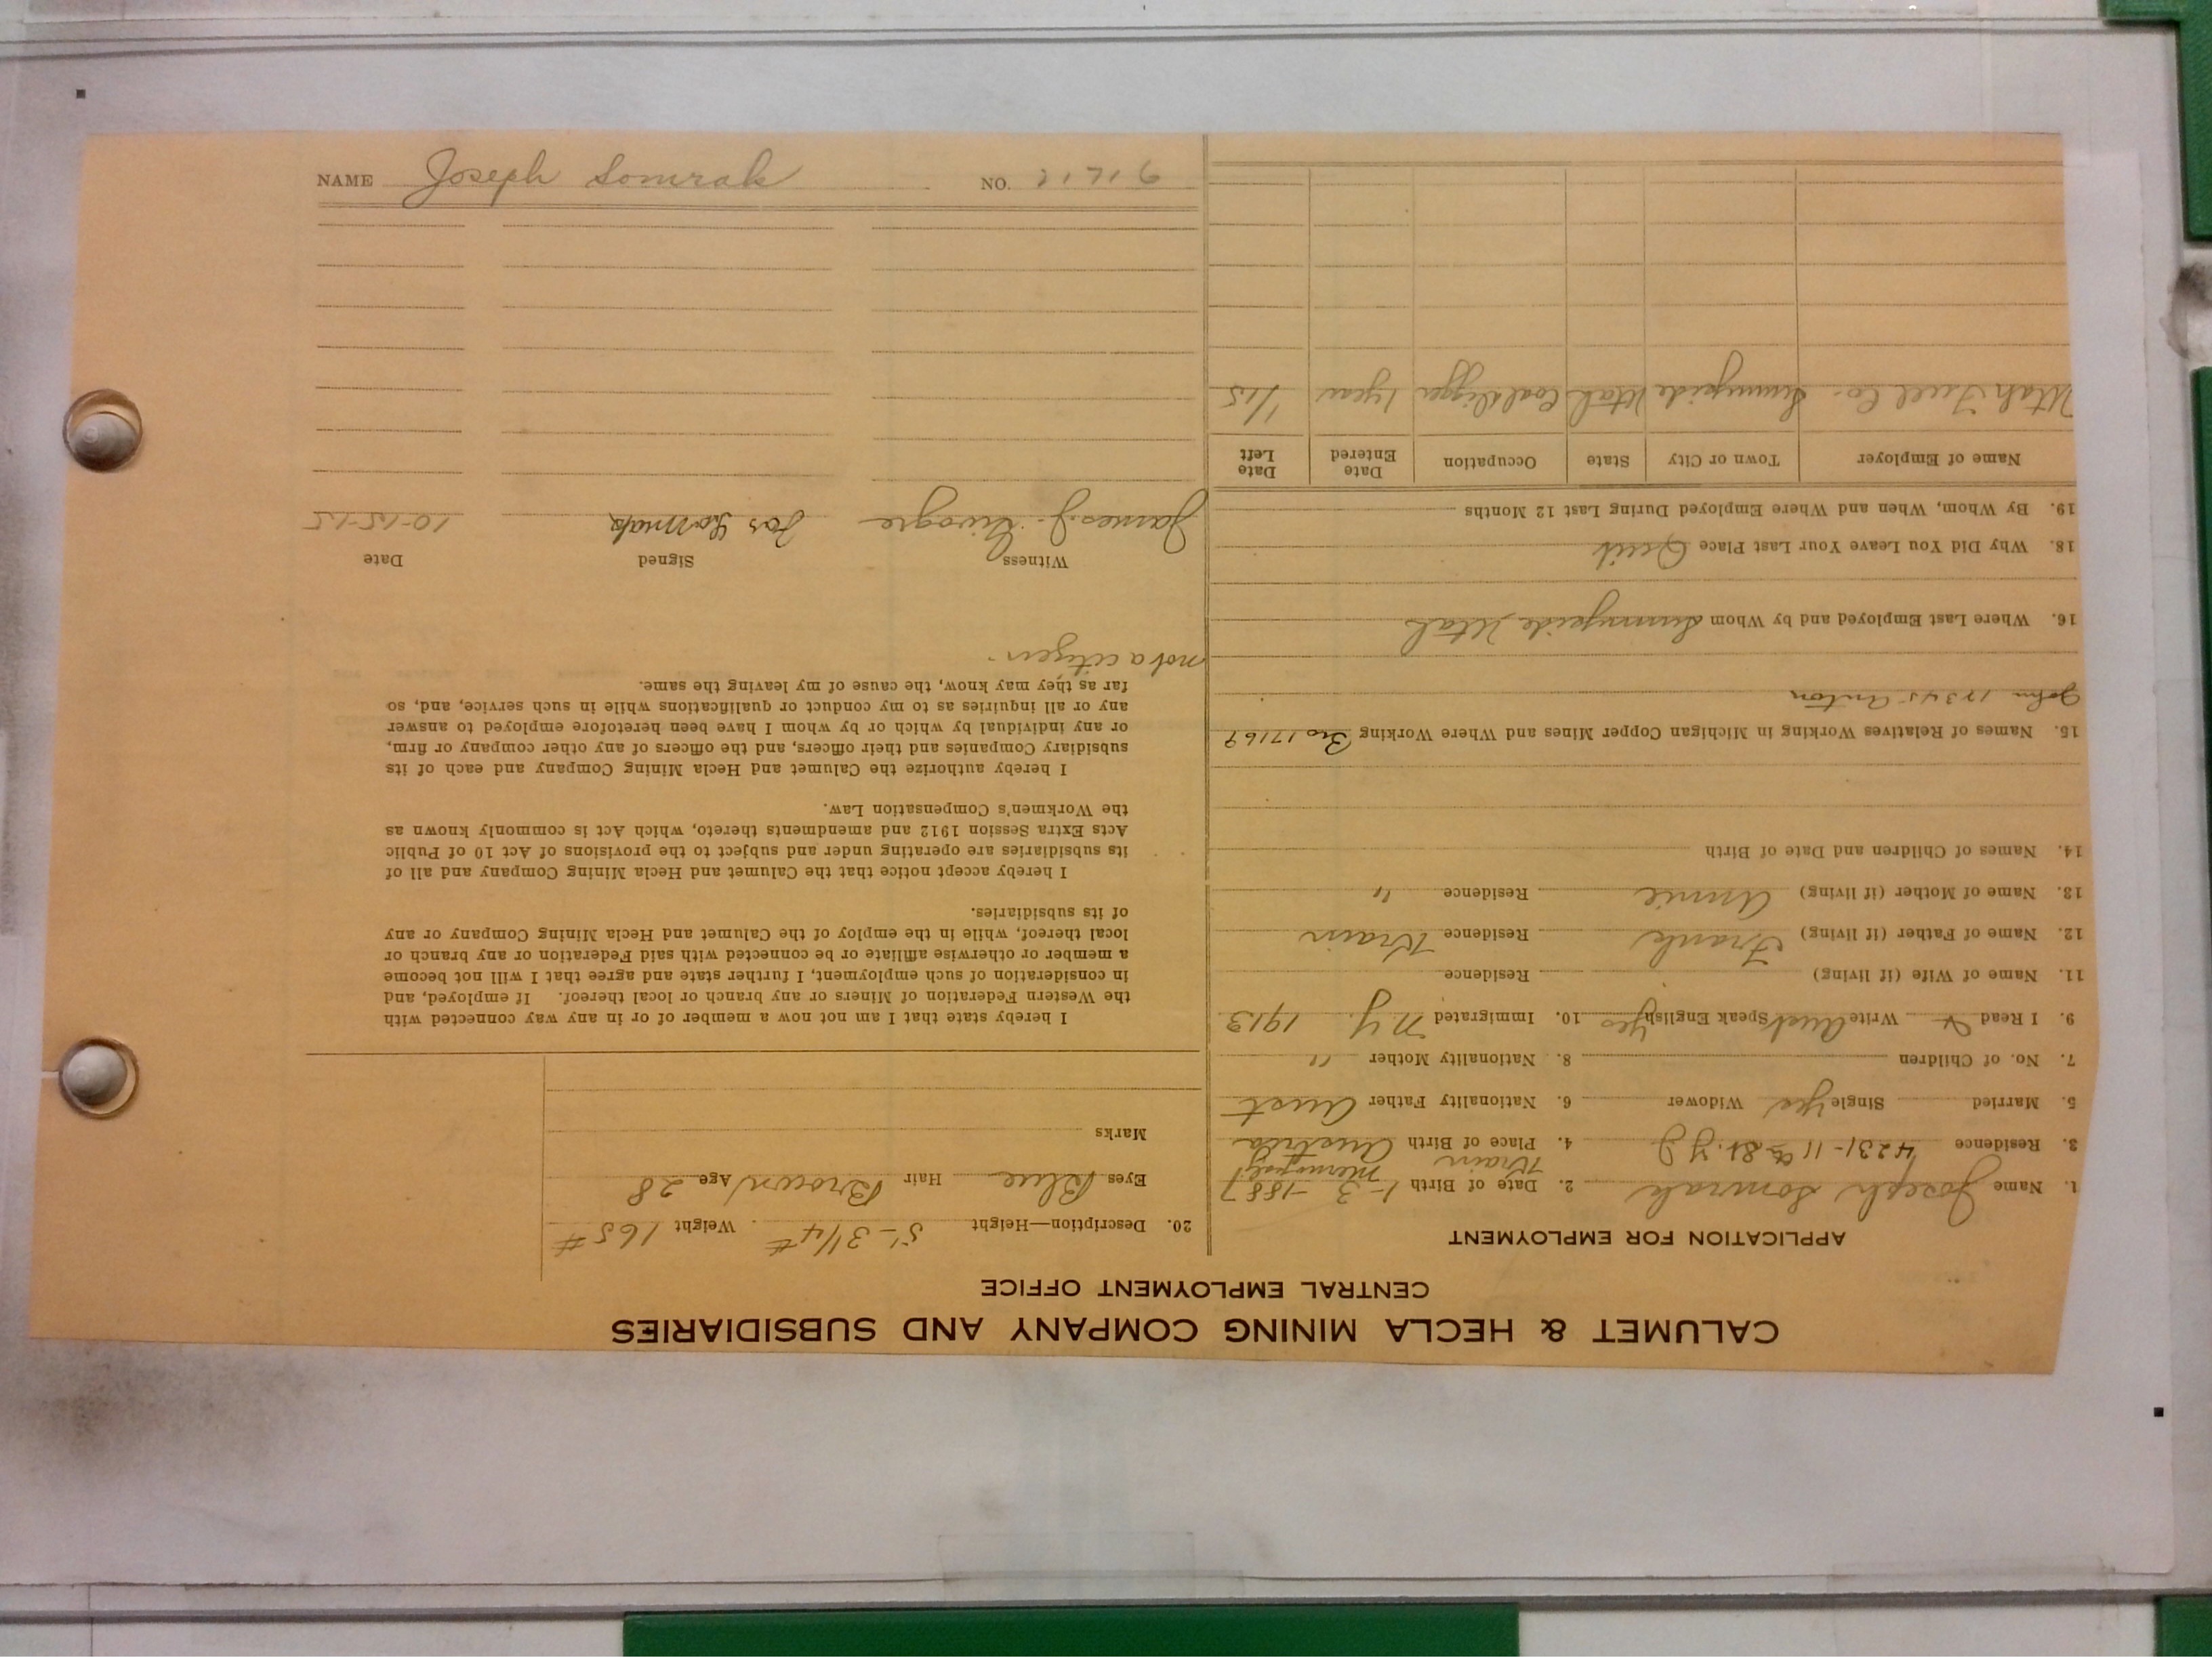 CALUMET & HECLA MINING COMPANY AND SUBSIDIARIES
CENTRAL EMPLOYMENT OFFICE
APPLICATION FOR EMPLOYMENT
1. Name Joseph Somrak 2. Date of Birth 1-3-1887
Krain
3. Residence 4231-11th St. 4. Place of Birth Austria
5. Married Single Yes Widower 6. Nationality Father Aust
7. No. of Children 8. Nationality Mother "
9. I Read & Write Aust Speak English Yes 10. Immigrated N.Y. 1913
11. Name of Wife (if living) Residence
12. Name of Father (if living) Frank Residence Krain
13. Name of Mother (if living) Annie Residence "
14. Names of Children and Date of Birth
15. Names of Relatives Working in Michigan Copper Mines and Where Working Bro 17169
John 17345 Anton
16. Where Last Employed and by Whom Sunnyside Utah
18. Why Did You Leave Your Last Place Quit
19. By Whom, When and Where Employed During Last 12 Months
Name of Employer Town or City State Occupation Date Entered Date Left
Utah Fuel Co. Sunnyside Utah Coal digger 1 year 1/15
20. Description—Height 5'-3 1/4" Weight 165#
Eyes Blue Hair Brown Age 28
Marks
I hereby state that I am not now a member of or in any way connected with
the Western Federation of Miners or any branch or local thereof. If employed, and
in consideration of such employment, I further state and agree that I will not become
a member or otherwise affiliate or be connected with said Federation or any branch or
local thereof, while in the employ of the Calumet and Hecla Mining Company or any
of its subsidiaries.
I hereby accept notice that the Calumet and Hecla Mining Company and all of
its subsidiaries are operating under and subject to the provisions of Act 10 of Public
Acts Extra Session 1912 and amendments thereto, which Act is commonly known as
the Workmen's Compensation Law.
I hereby authorize the Calumet and Hecla Mining Company and each of its
subsidiary Companies and their officers, and the officers of any other company or firm,
or any individual by which or by whom I have been heretofore employed to answer
any or all inquiries as to my conduct or qualifications while in such service, and, so
far as they may know, the cause of my leaving the same.
not a citizen
Witness Signed Date
James J. Jos Somrak 10-15-15
NAME Joseph Somrak NO. 21716